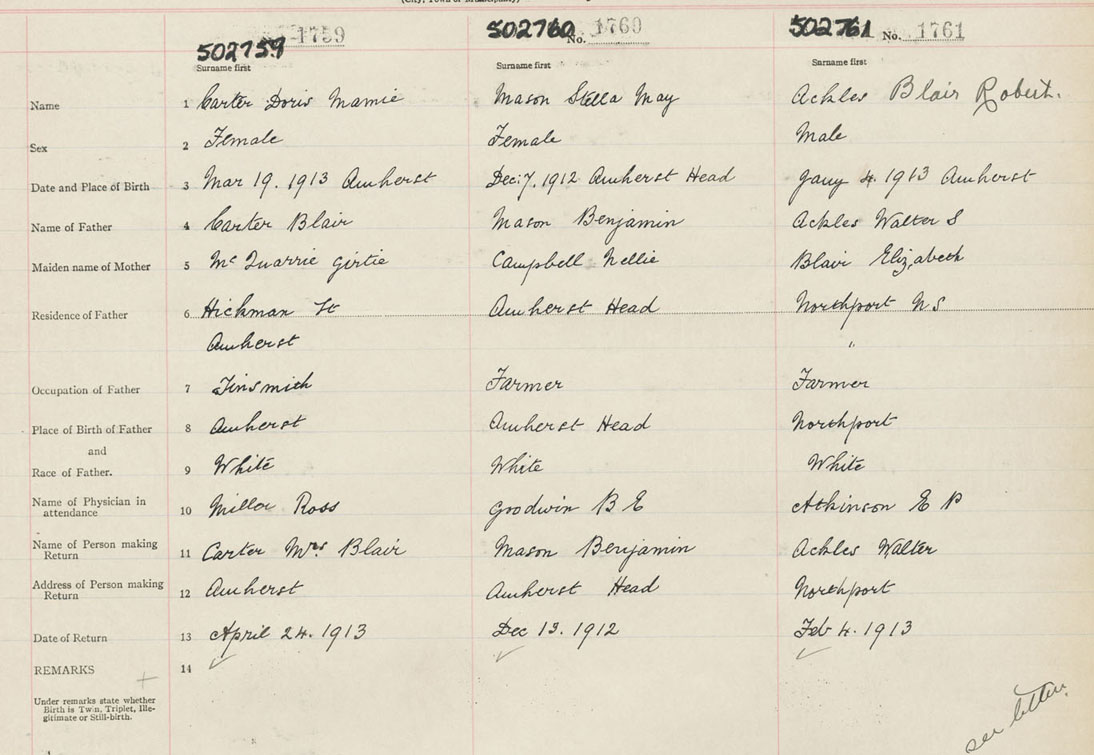 (City, Town or Municipality)
502759 1759 502760 No. 1760 502761 No. 1761
Surname first Surname first Surname first
Name 1 Carter Doris Mamie Mason Stella May Ackles Blair Robert.
Sex 2 Female Female Male
Date and Place of Birth 3 Mar 19. 1913 Amherst Dec. 7. 1912 Amherst Head Jany 4. 1913 Amherst
Name of Father 4 Carter Blair Mason Benjamin Ackles Walter S
Maiden name of Mother 5 McQuarrie Girtie Campbell Nellie Blair Elizabeth
Residence of Father 6 Hickman St Amherst Head Northport N S
Amherst "
Occupation of Father 7 Tinsmith Farmer Farmer
Place of Birth of Father 8 Amherst Amherst Head Northport
and
Race of Father. 9 White White White
Name of Physician in
attendance 10 Ross Goodwin B E Atkinson E P
Name of Person making
Return 11 Carter Mrs Blair Mason Benjamin Ackles Walter
Address of Person making
Return 12 Amherst Amherst Head Northport
Date of Return 13 April 24. 1913 Dec 13. 1912 Feb 4. 1913
REMARKS 14
Under remarks state whether
Birth is Twin, Triplet, Ille-
gitimate or Still-birth.
see letter.